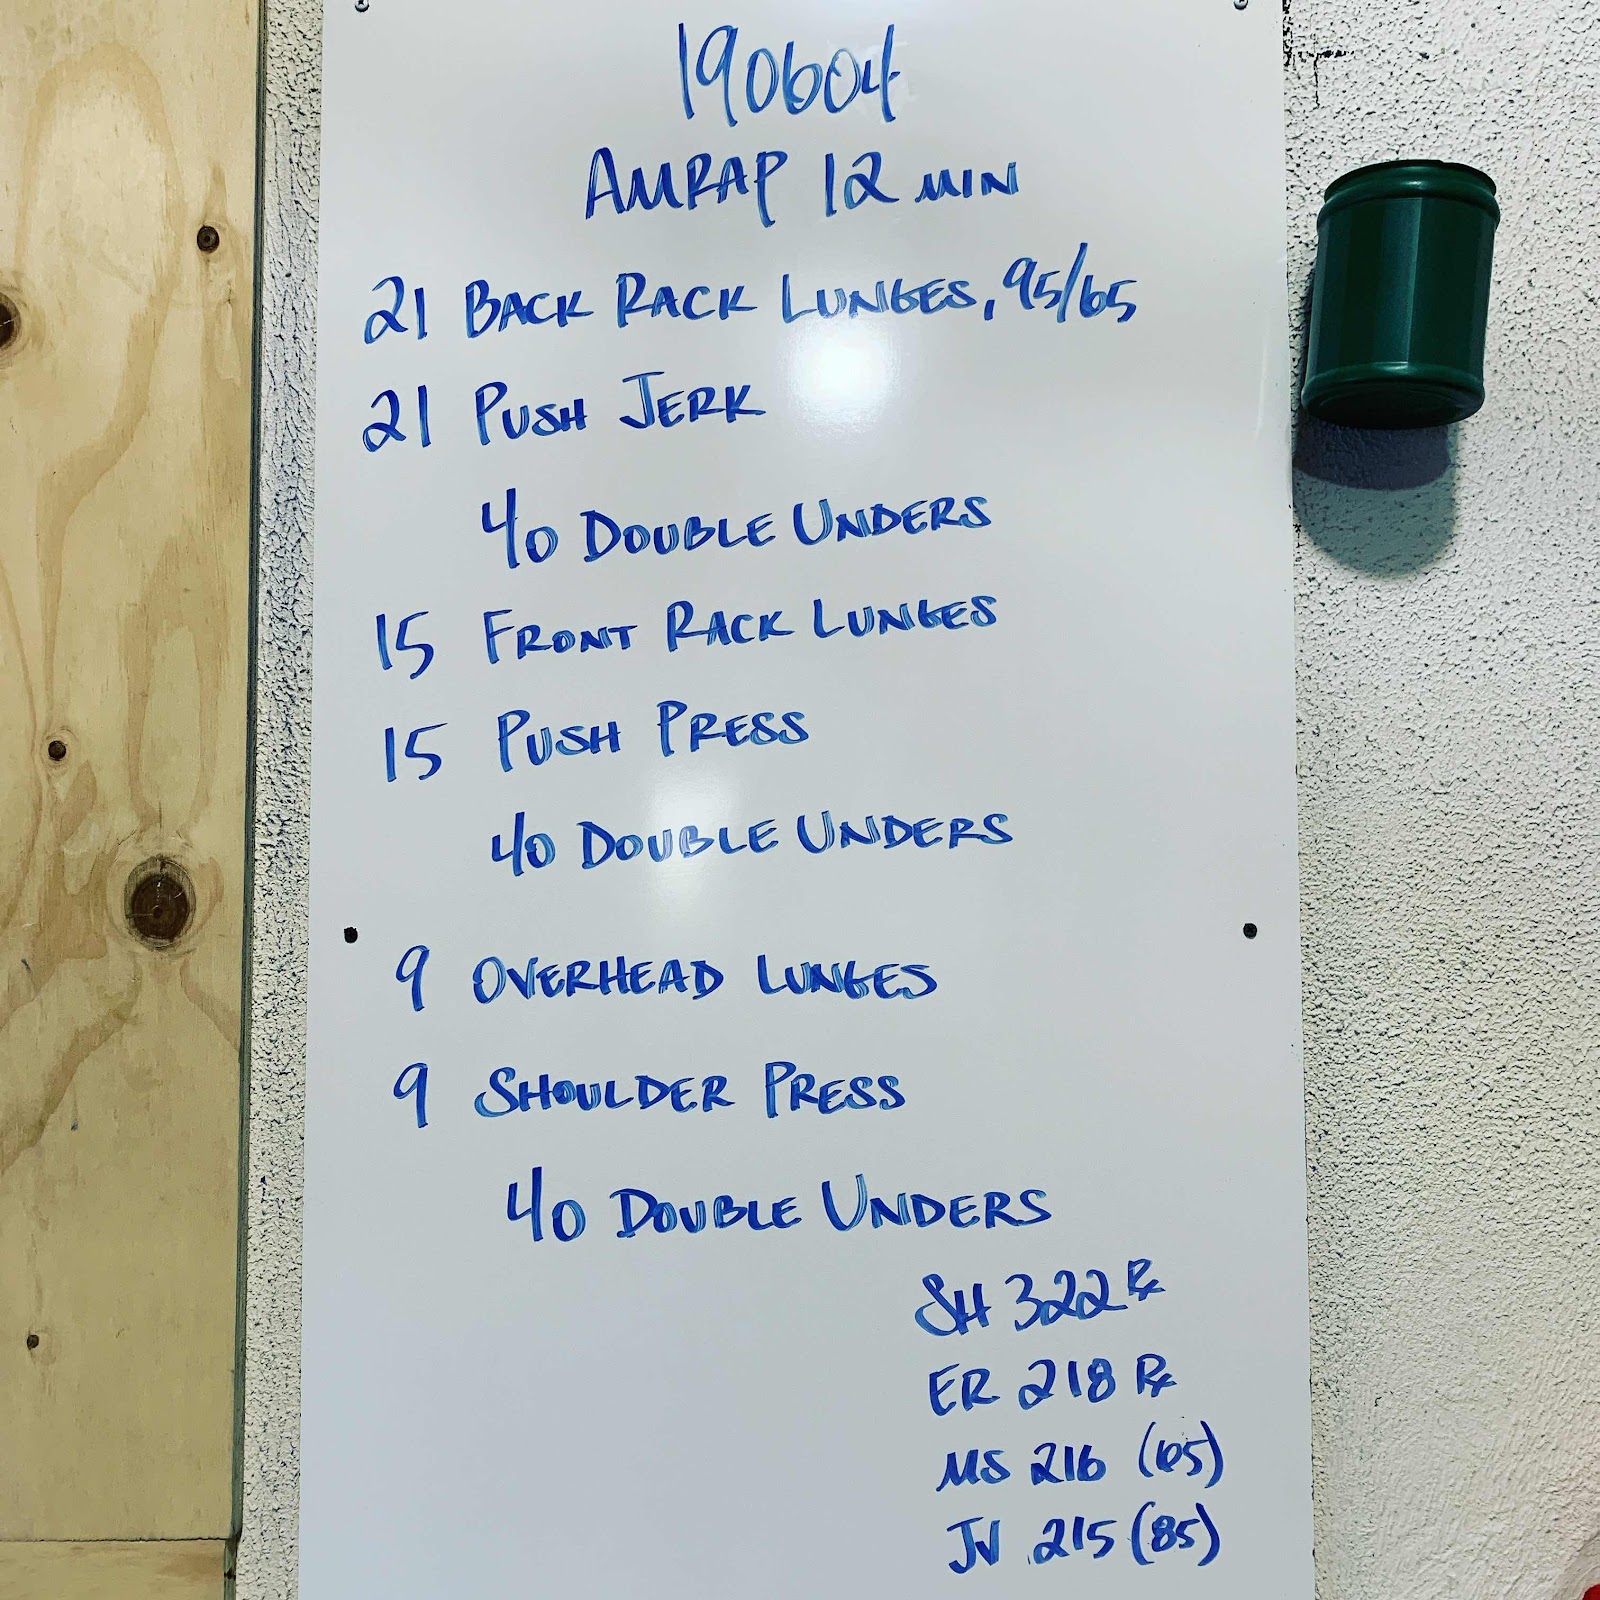 190604
AMRAP 12 MIN
21 BACK RACK LUNGES, 95/65
21 PUSH JERK
40 DOUBLE UNDERS
15 FRONT RACK LUNGES
15 PUSH PRESS
40 DOUBLE UNDERS
9 OVERHEAD LUNGES
9 SHOULDER PRESS
40 DOUBLE UNDERS
SH 322 Rx
ER 218 Rx
MS 216 (65)
JV 215 (85)